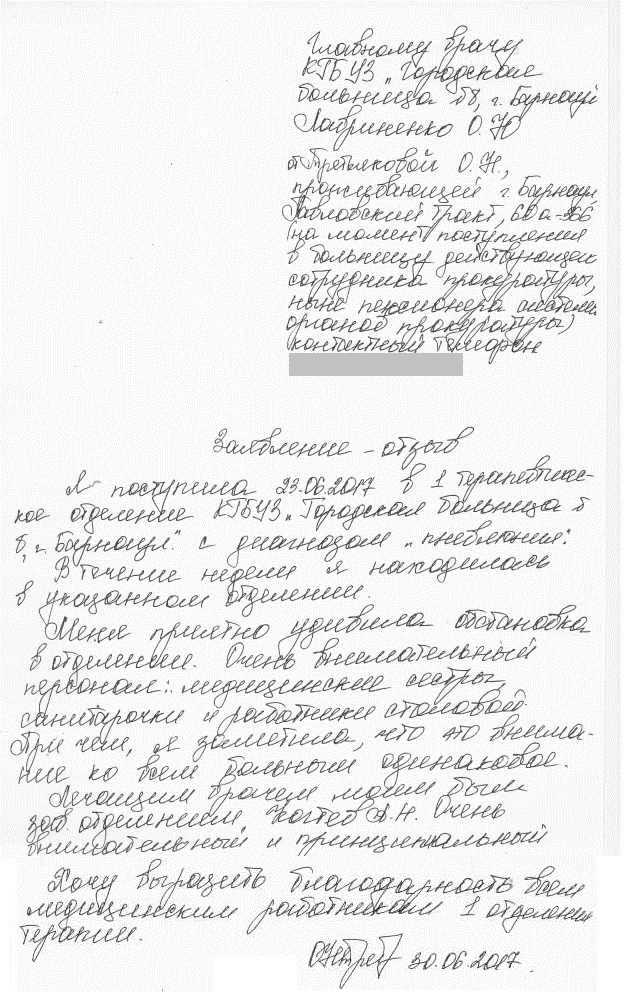 Главному врачу
КГБУЗ „Городская
больница №8, г. Барнаул
Лавриненко О.Н
от Третьяковой О.Н.,
проживающей г. Барнаул,
Павловский тракт, 60а-366
(на момент поступления
в больницу действующего
сотрудника прокуратуры,
ныне пенсионера системы
органов прокуратуры)
контактный телефон
Заявление - отзыв
Я поступила 23.06.2017 в 1 терапевтичес-
кое отделение КГБУЗ „Городская больница №
8, г. Барнаул." с диагнозом „пневмония".
В течение недели я находилась
в указанном отделении.
Меня приятно удивила обстановка
в отделении. Очень внимательный
персонал: медицинские сестры,
санитарочки и работники столовой.
При чем, я заметила, что это внима-
ние ко всем больным одинаковое.
Лечащим врачем моим был
зав. отделением Когтев А.Н. Очень
внимательный и принципиальный
Хочу выразить благодарность всем
медицинским работникам 1 отделения
терапии.
30.06.2017.